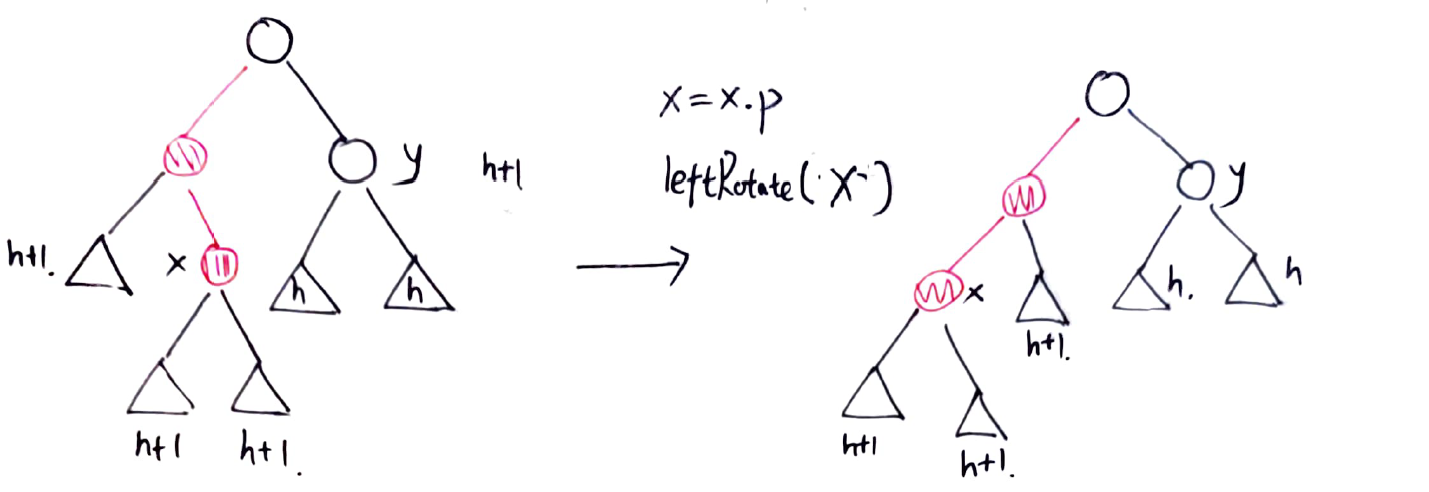 y
h+1
h+1.
x
h
h
h+1
h+1.
x=x.p
leftRotate(x)
y
x
h.
h
h+1.
h+1
h+1.